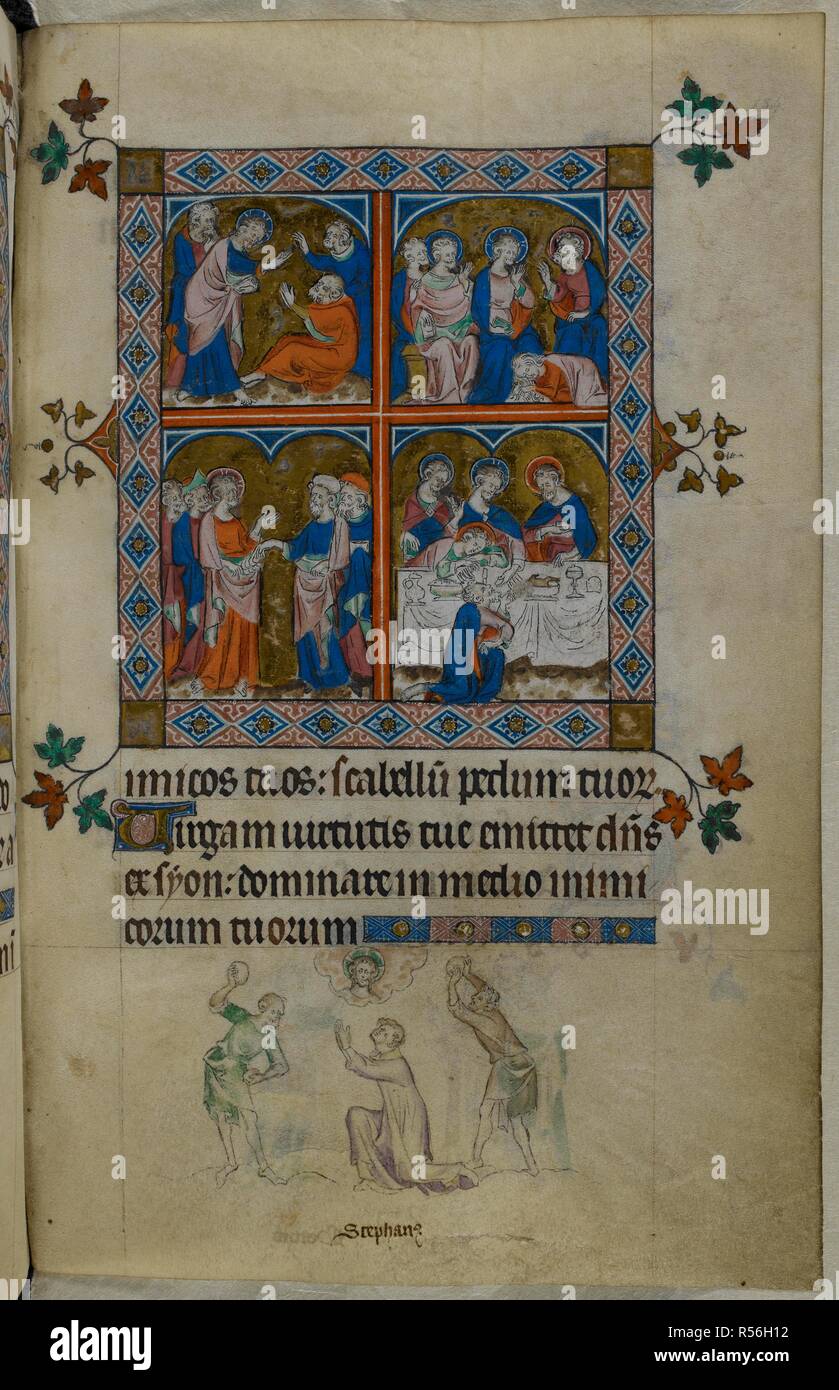 inimicos tuos: scabellū pedum tuoꝝ.
Virgam uirtutis tue emittet dn̄s
ex syon: dominare in medio inimi
corum tuorum
Stephanꝰ
alamy
Image ID: R56H12
www.alamy.com